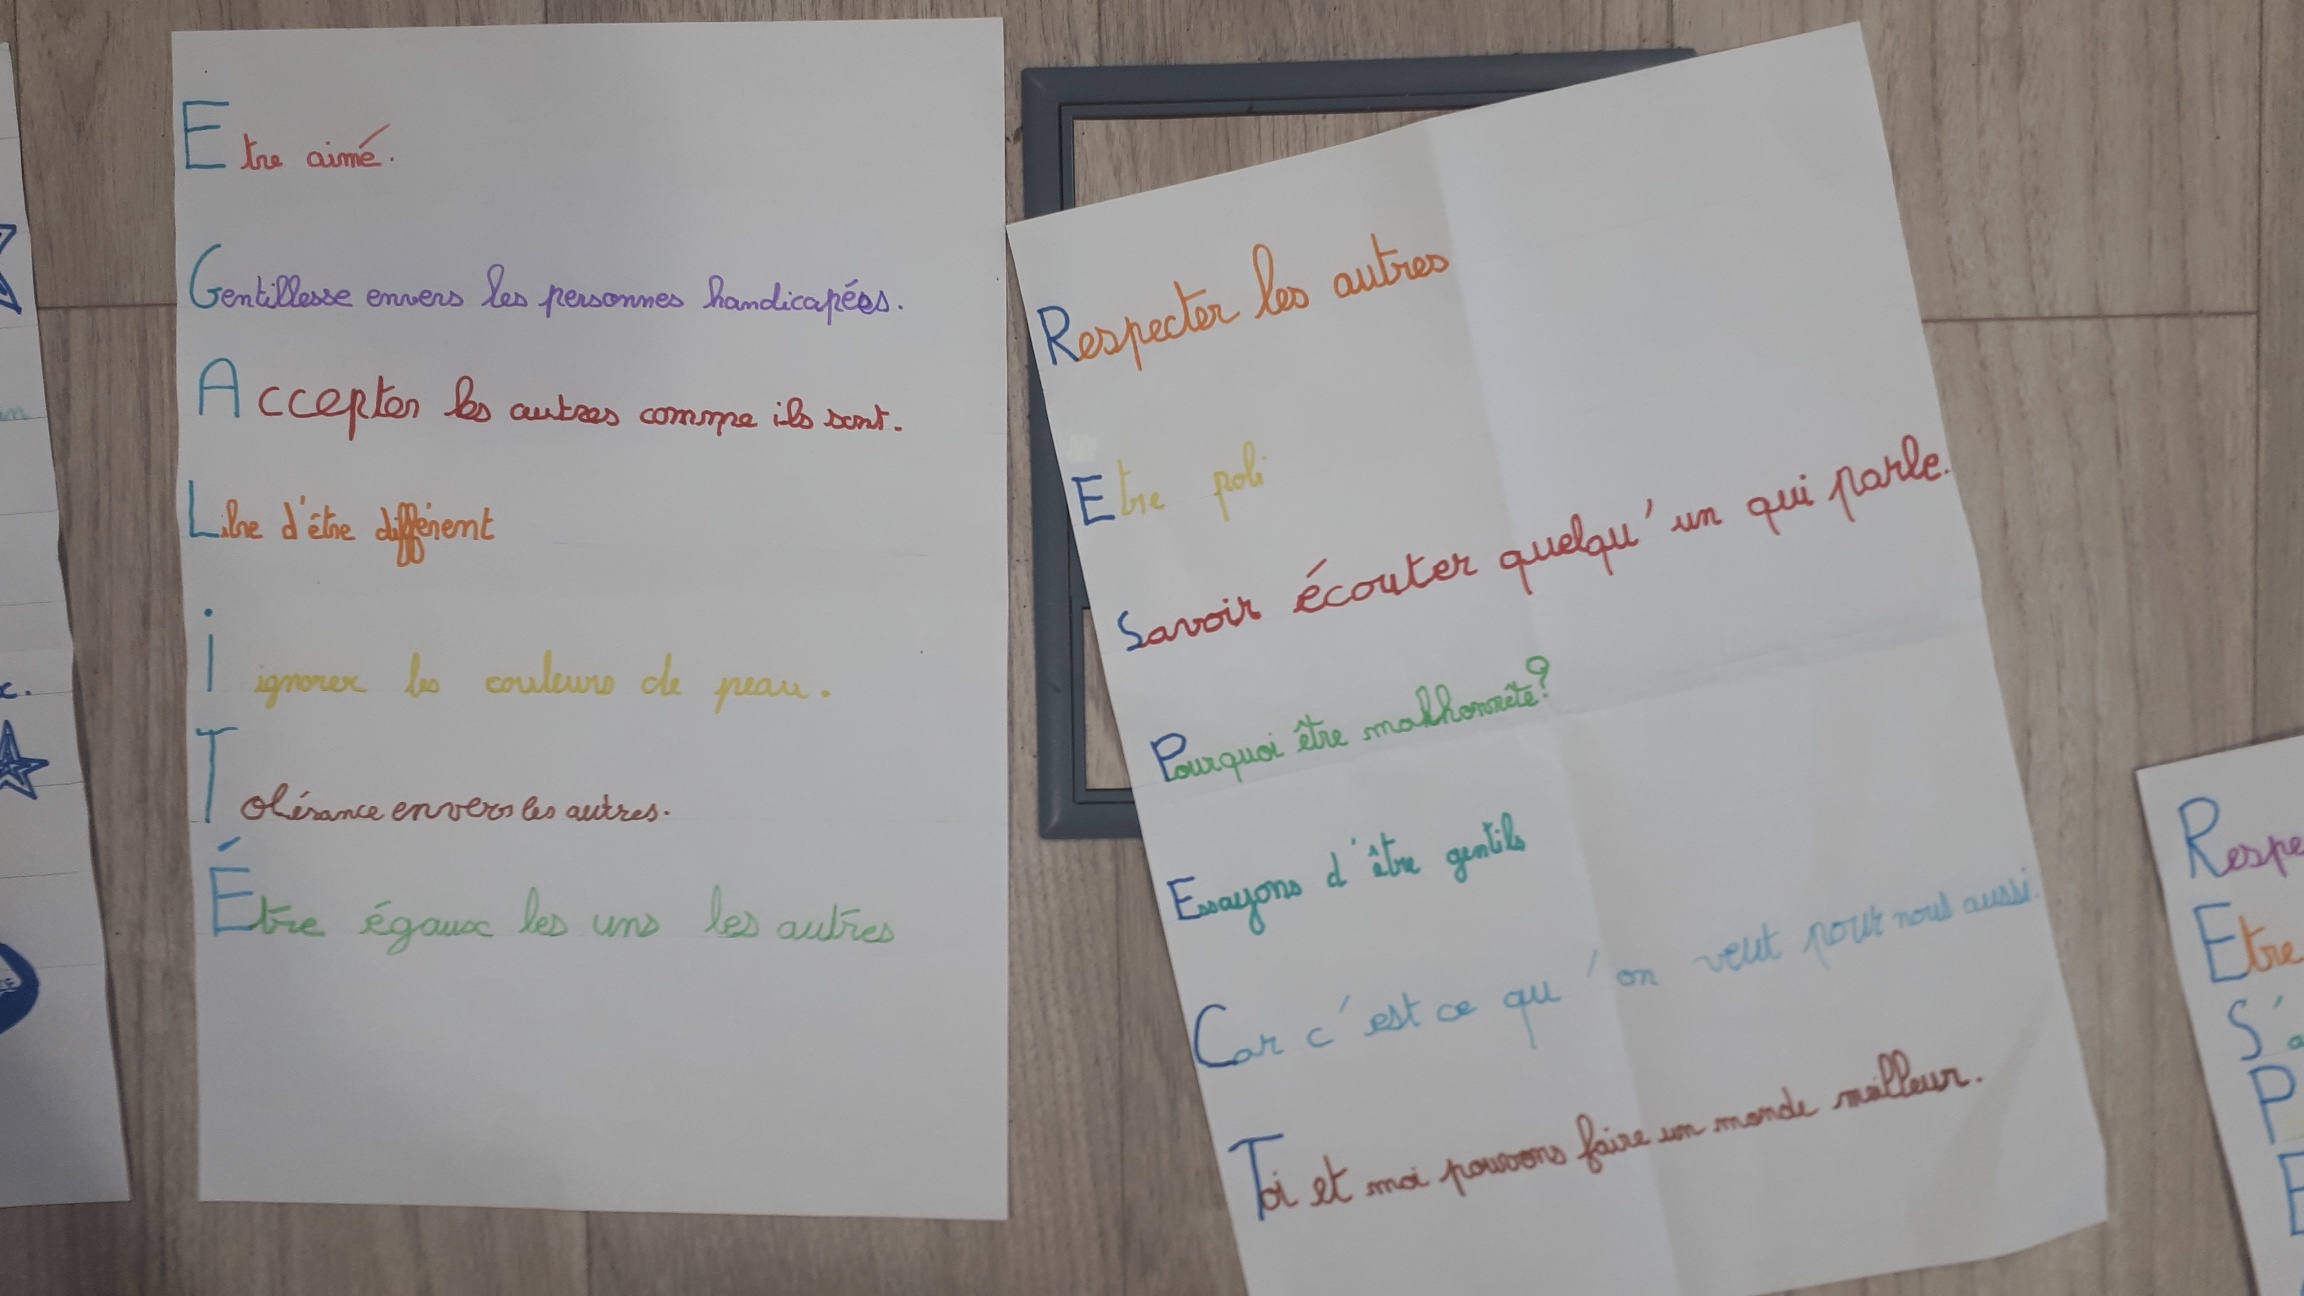 Etre aimé.
Gentillesse envers les personnes handicapées.
Accepter les autres comme ils sont.
Libre d'être différent
i ignorer les couleurs de peau.
Tolérance envers les autres.
Être égaux les uns les autres
Respecter les autres
Etre poli
Savoir écouter quelqu'un qui parle.
Pourquoi être malhonnête?
Essayons d'être gentils
Car c'est ce qu'on veut pour nous aussi.
Toi et moi pouvons faire un monde meilleur.
Respe
Etre
S'a
P
E